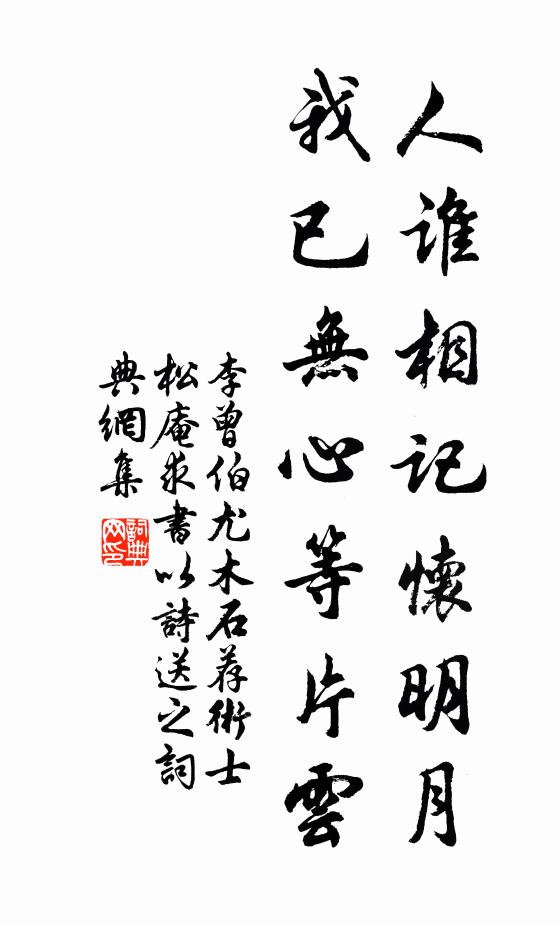 人誰相記懷明月
我已無心等片雲
李曾伯尤木石荐術士
松庵求書以詩送之詞
典網集
詞典網印